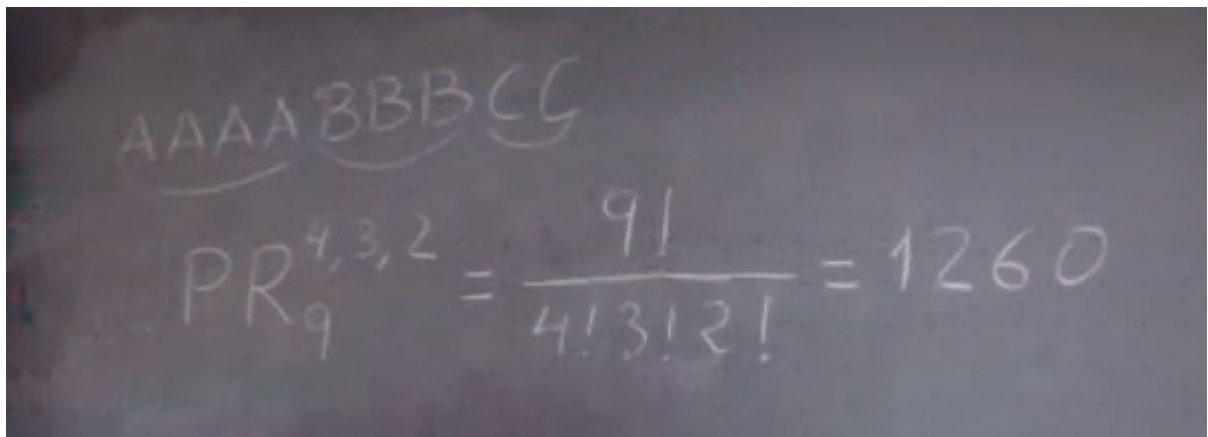 AAAA BBB CC
PR₉^{4,3,2} = 9! / 4!3!2! = 1260